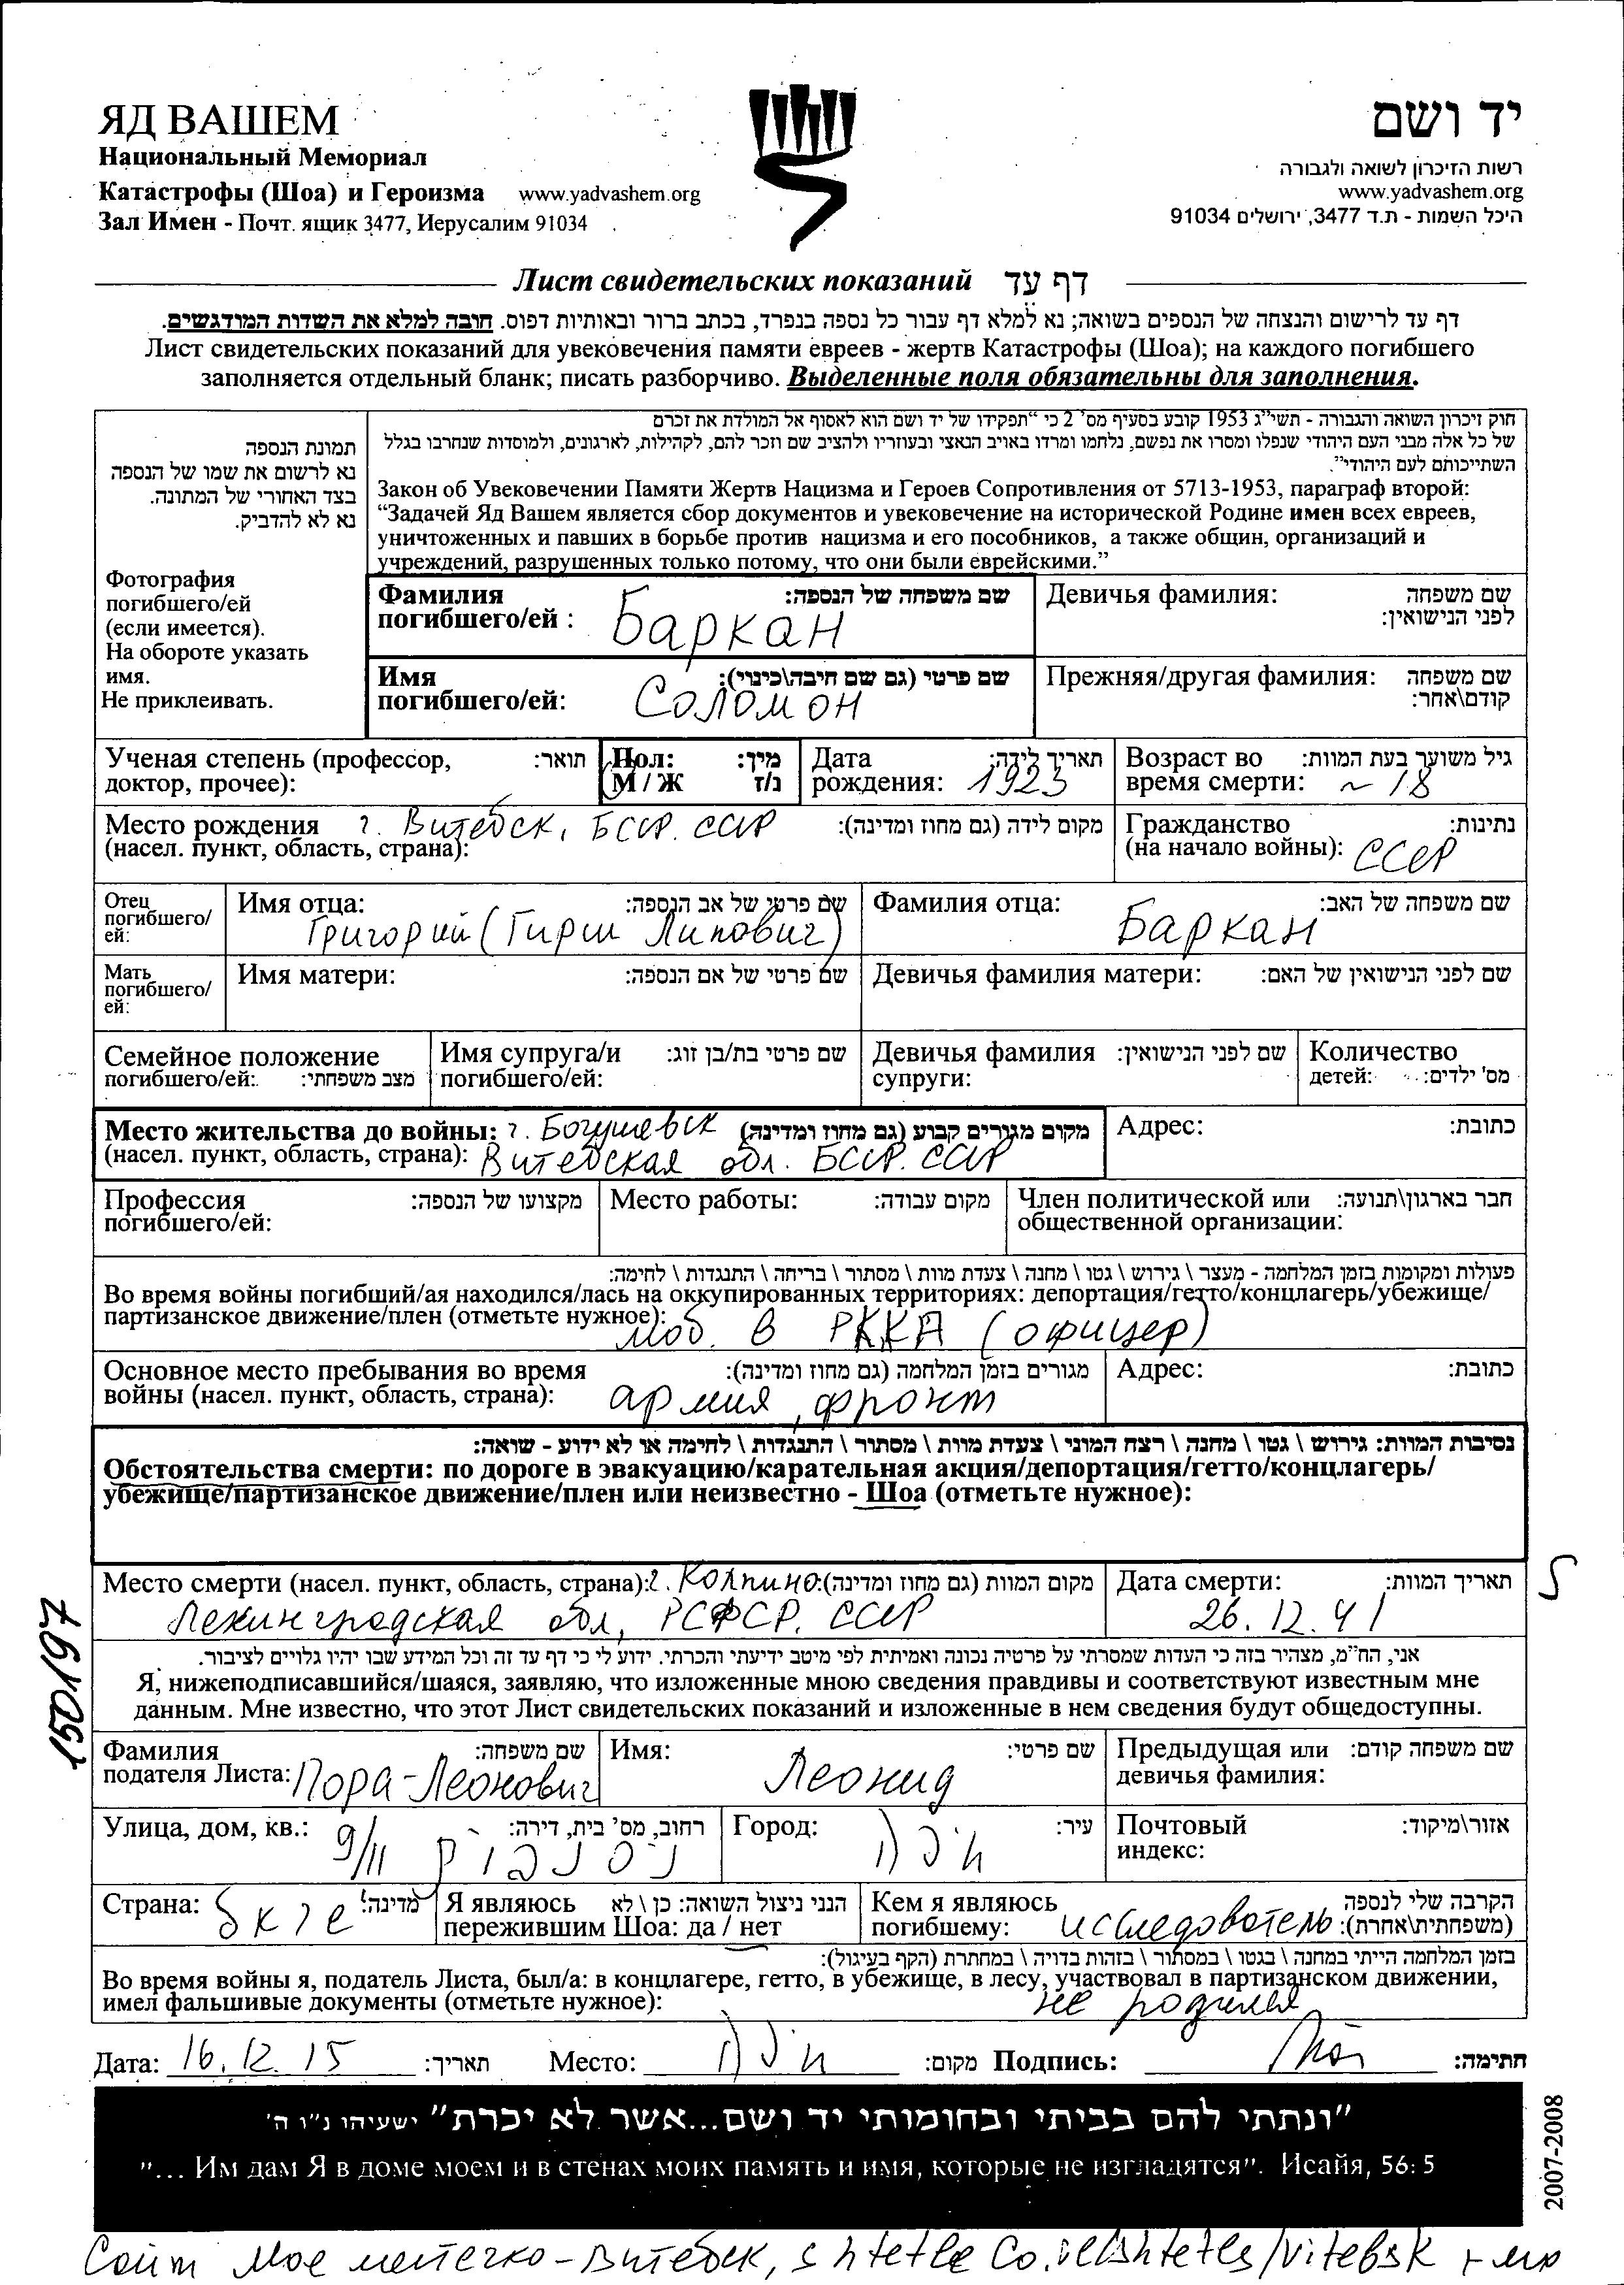 ЯД ВАШЕМ
Национальный Мемориал
Катастрофы (Шоа) и Героизма www.yadvashem.org
Зал Имен - Почт. ящик 3477, Иерусалим 91034
יד ושם
רשות הזיכרון לשואה ולגבורה
www.yadvashem.org
היכל השמות - ת.ד 3477, ירושלים 91034
Лист свидетельских показаний דף עד
דף עד לרישום והנצחה של הנספים בשואה; נא למלא דף עבור כל נספה בנפרד, בכתב ברור ובאותיות דפוס. חובה למלא את השדות המודגשים.
Лист свидетельских показаний для увековечения памяти евреев - жертв Катастрофы (Шоа); на каждого погибшего
заполняется отдельный бланк; писать разборчиво. Выделенные поля обязательны для заполнения.
תמונת הנספה
נא לרשום את שמו של הנספה
בצד האחורי של המתונה.
נא לא להדביק.
Фотография
погибшего/ей
(если имеется).
На обороте указать
имя.
Не приклеивать.
חוק זיכרון השואה והגבורה - תשי"ג 1953 קובע בסעיף מס' 2 כי "תפקידו של יד ושם הוא לאסוף אל המולדת את זכרם
של כל אלה מבני העם היהודי שנפלו ומסרו את נפשם, נלחמו ומרדו באויב הנאצי ובעוזריו ולהציב שם וזכר להם, לקהילות, לארגונים, ולמוסדות שנחרבו בגלל
השתייכותם לעם היהודי".
Закон об Увековечении Памяти Жертв Нацизма и Героев Сопротивления от 5713-1953, параграф второй:
“Задачей Яд Вашем является сбор документов и увековечение на исторической Родине имен всех евреев,
уничтоженных и павших в борьбе против нацизма и его пособников, а также общин, организаций и
учреждений, разрушенных только потому, что они были еврейскими.”
Фамилия שם משפחה של הנספה:
погибшего/ей : Баркан
Девичья фамилия: שם משפחה
לפני הנישואין:
Имя שם פרטי (גם שם חיבה\כינוי):
погибшего/ей: Соломон
Прежняя/другая фамилия: שם משפחה
קודם\אחר:
Ученая степень (профессор, תואר:
доктор, прочее):
Пол: מין:
М / Ж ז/נ
Дата תאריך לידה:
рождения: 1923
Возраст во גיל משוער בעת המוות:
время смерти: ~ 18
Место рождения г. Витебск, БССР. СССР מקום לידה (גם מחוז ומדינה):
(насел. пункт, область, страна):
Гражданство נתינות:
(на начало войны): СССР
Отец
погибшего/
ей:
Имя отца: שם פרטי של אב הנספה:
Григорий (Гирш Липович)
Фамилия отца: שם משפחה של האב:
Баркан
Мать
погибшего/
ей:
Имя матери: שם פרטי של אם הנספה:
Девичья фамилия матери: שם לפני הנישואין של האם:
Семейное положение
погибшего/ей: מצב משפחתי:
Имя супруга/и שם פרטי בת/בן זוג:
погибшего/ей:
Девичья фамилия שם לפני הנישואין:
супруги:
Количество
детей: מס' ילדים:
Место жительства до войны: г. Богушевск מקום מגורים קבוע (גם מחוז ומדינה)
(насел. пункт, область, страна): Витебская обл. БССР. СССР
Адрес: כתובת:
Профессия מקצועו של הנספה:
погибшего/ей:
Место работы: מקום עבודה:
Член политической или חבר בארגון\תנועה:
общественной организации:
פעולות ומקומות בזמן המלחמה - מעצר \ גירוש \ גטו \ מחנה \ צעדת מוות \ מסתור \ בריחה \ התנגדות \ לחימה:
Во время войны погибший/ая находился/лась на оккупированных территориях: депортация/гетто/концлагерь/убежище/
партизанское движение/плен (отметьте нужное): моб. в РККА (офицер)
Основное место пребывания во время מגורים בזמן המלחמה (גם מחוז ומדינה):
войны (насел. пункт, область, страна): армия, фронт
Адрес: כתובת:
נסיבות המוות: גירוש \ גטו \ מחנה \ רצח המוני \ צעדת מוות \ מסתור \ התנגדות \ לחימה או לא ידוע - שואה:
Обстоятельства смерти: по дороге в эвакуацию/карательная акция/депортация/гетто/концлагерь/
убежище/партизанское движение/плен или неизвестно - Шоа (отметьте нужное):
Место смерти (насел. пункт, область, страна): г. Колпино מקום המוות (גם מחוז ומדינה):
Ленинградская обл, РСФСР. СССР
Дата смерти: תאריך המוות:
26.12.41
אני, הח"מ, מצהיר בזה כי העדות שמסרתי על פרטיה נכונה ואמיתית לפי מיטב ידיעתי והכרתי. ידוע לי כי דף עד זה וכל המידע שבו יהיו גלויים לציבור.
Я, нижеподписавшийся/шаяся, заявляю, что изложенные мною сведения правдивы и соответствуют известным мне
данным. Мне известно, что этот Лист свидетельских показаний и изложенные в нем сведения будут общедоступны.
Фамилия שם משפחה:
подателя Листа: Пора-Леонович
Имя: שם פרטי:
Леонид
Предыдущая или שם משפחה קודם:
девичья фамилия:
Улица, дом, кв.: רחוב, מס' בית, דירה:
9/11
Город: עיר:
Почтовый אזור\מיקוד:
индекс:
Страна: מדינה:
Я являюсь הנני ניצול השואה: כן \ לא
пережившим Шоа: да / нет
Кем я являюсь הקרבה שלי לנספה
погибшему: исследователь (משפחתית\אחרת):
בזמן המלחמה הייתי במחנה \ בגטו \ במסתור \ בזהות בדויה \ במחתרת (הקף בעיגול):
Во время войны я, податель Листа, был/а: в концлагере, гетто, в убежище, в лесу, участвовал в партизанском движении,
имел фальшивые документы (отметьте нужное): не родился
Дата: 16.12.15 תאריך: Место: מקום: Подпись: חתימה:
"ונתתי להם בביתי ובחומותי יד ושם...אשר לא יכרת" ישעיהו נ"ו ה'
"... Им дам Я в доме моем и в стенах моих память и имя, которые не изгладятся". Исайя, 56: 5
Сайт Мое местечко-Витебск,
150197
2007-2008